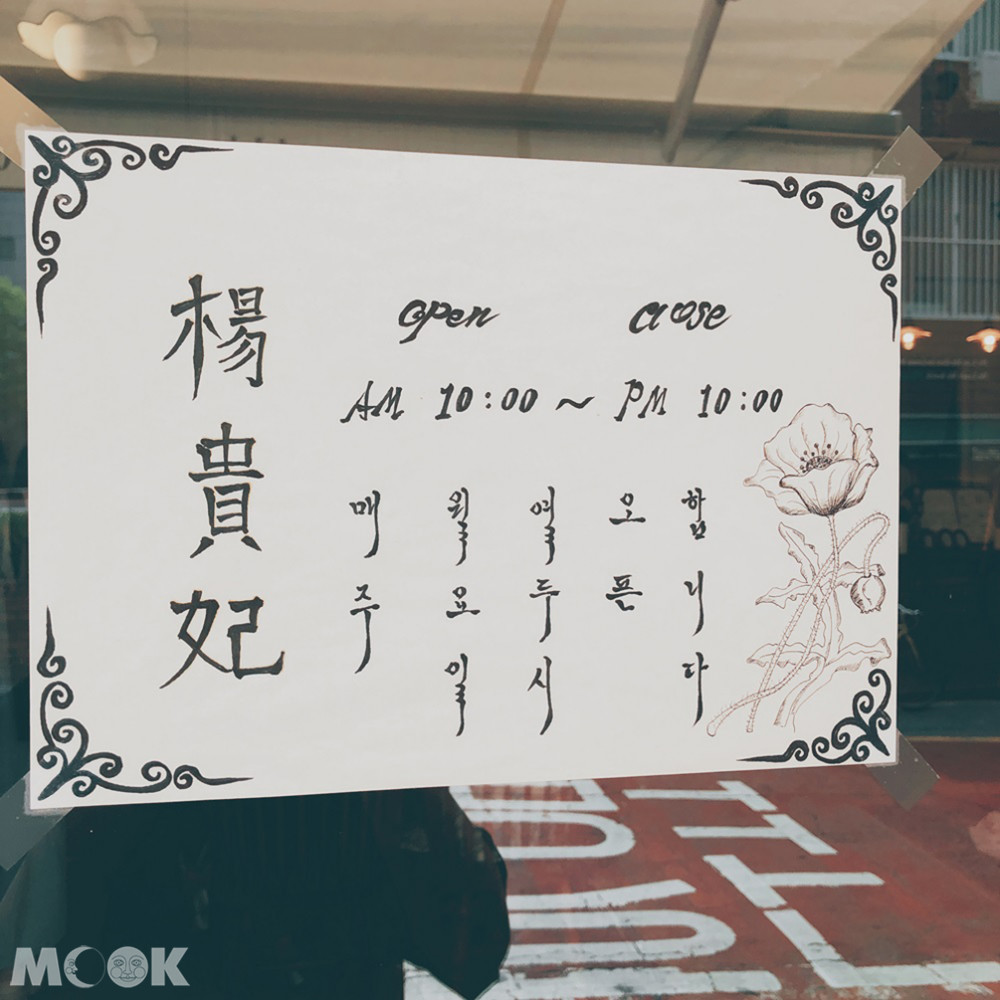 楊貴妃
open close
AM 10:00 ~ PM 10:00
매주
월요일
열두시
오픈
합니다
MOOK